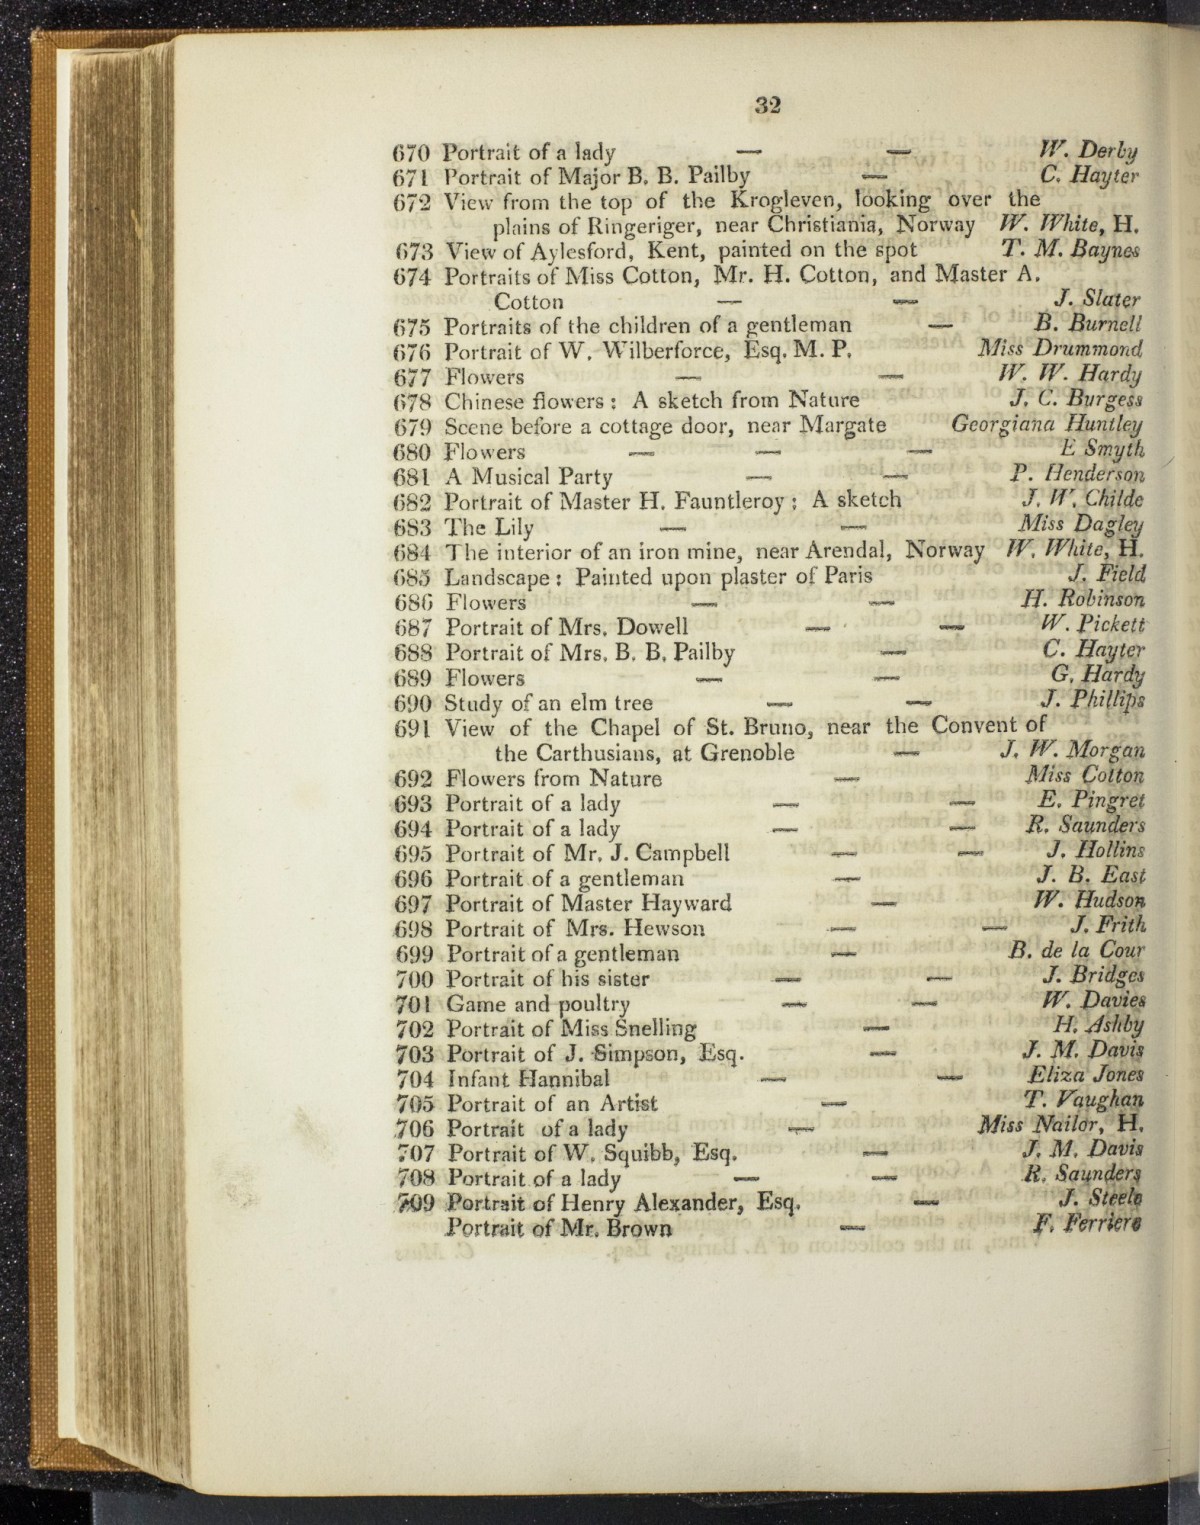 32
670 Portrait of a lady — — W. Derby
671 Portrait of Major B. B. Pailby — C. Hayter
672 View from the top of the Krogleven, looking over the
plains of Ringeriger, near Christiania, Norway W. White, H.
673 View of Aylesford, Kent, painted on the spot T. M. Baynes
674 Portraits of Miss Cotton, Mr. H. Cotton, and Master A.
Cotton — — J. Slater
675 Portraits of the children of a gentleman — B. Burnell
676 Portrait of W. Wilberforce, Esq. M. P. Miss Drummond
677 Flowers — — W. W. Hardy
678 Chinese flowers : A sketch from Nature J. C. Burgess
679 Scene before a cottage door, near Margate Georgiana Huntley
680 Flowers — — — E Smyth
681 A Musical Party — — P. Henderson
682 Portrait of Master H. Fauntleroy ; A sketch J. W. Childe
683 The Lily — — Miss Dagley
684 The interior of an iron mine, near Arendal, Norway W. White, H.
685 Landscape : Painted upon plaster of Paris J. Field
686 Flowers — — H. Robinson
687 Portrait of Mrs. Dowell — — W. Pickett
688 Portrait of Mrs. B. B. Pailby — C. Hayter
689 Flowers — — G. Hardy
690 Study of an elm tree — — J. Phillips
691 View of the Chapel of St. Bruno, near the Convent of
the Carthusians, at Grenoble — J. W. Morgan
692 Flowers from Nature — Miss Cotton
693 Portrait of a lady — — E. Pingret
694 Portrait of a lady — — R. Saunders
695 Portrait of Mr. J. Campbell — — J. Hollins
696 Portrait of a gentleman — J. B. East
697 Portrait of Master Hayward — W. Hudson
698 Portrait of Mrs. Hewson — — J. Frith
699 Portrait of a gentleman — B. de la Cour
700 Portrait of his sister — — J. Bridges
701 Game and poultry — — W. Davies
702 Portrait of Miss Snelling — H. Ashby
703 Portrait of J. Simpson, Esq. — J. M. Davis
704 Infant Hannibal — — Eliza Jones
705 Portrait of an Artist — T. Vaughan
706 Portrait of a lady — Miss Nailor, H.
707 Portrait of W. Squibb, Esq. — J. M. Davis
708 Portrait of a lady — — R. Saunders
709 Portrait of Henry Alexander, Esq. — J. Steele
Portrait of Mr. Brown — F. Ferriere